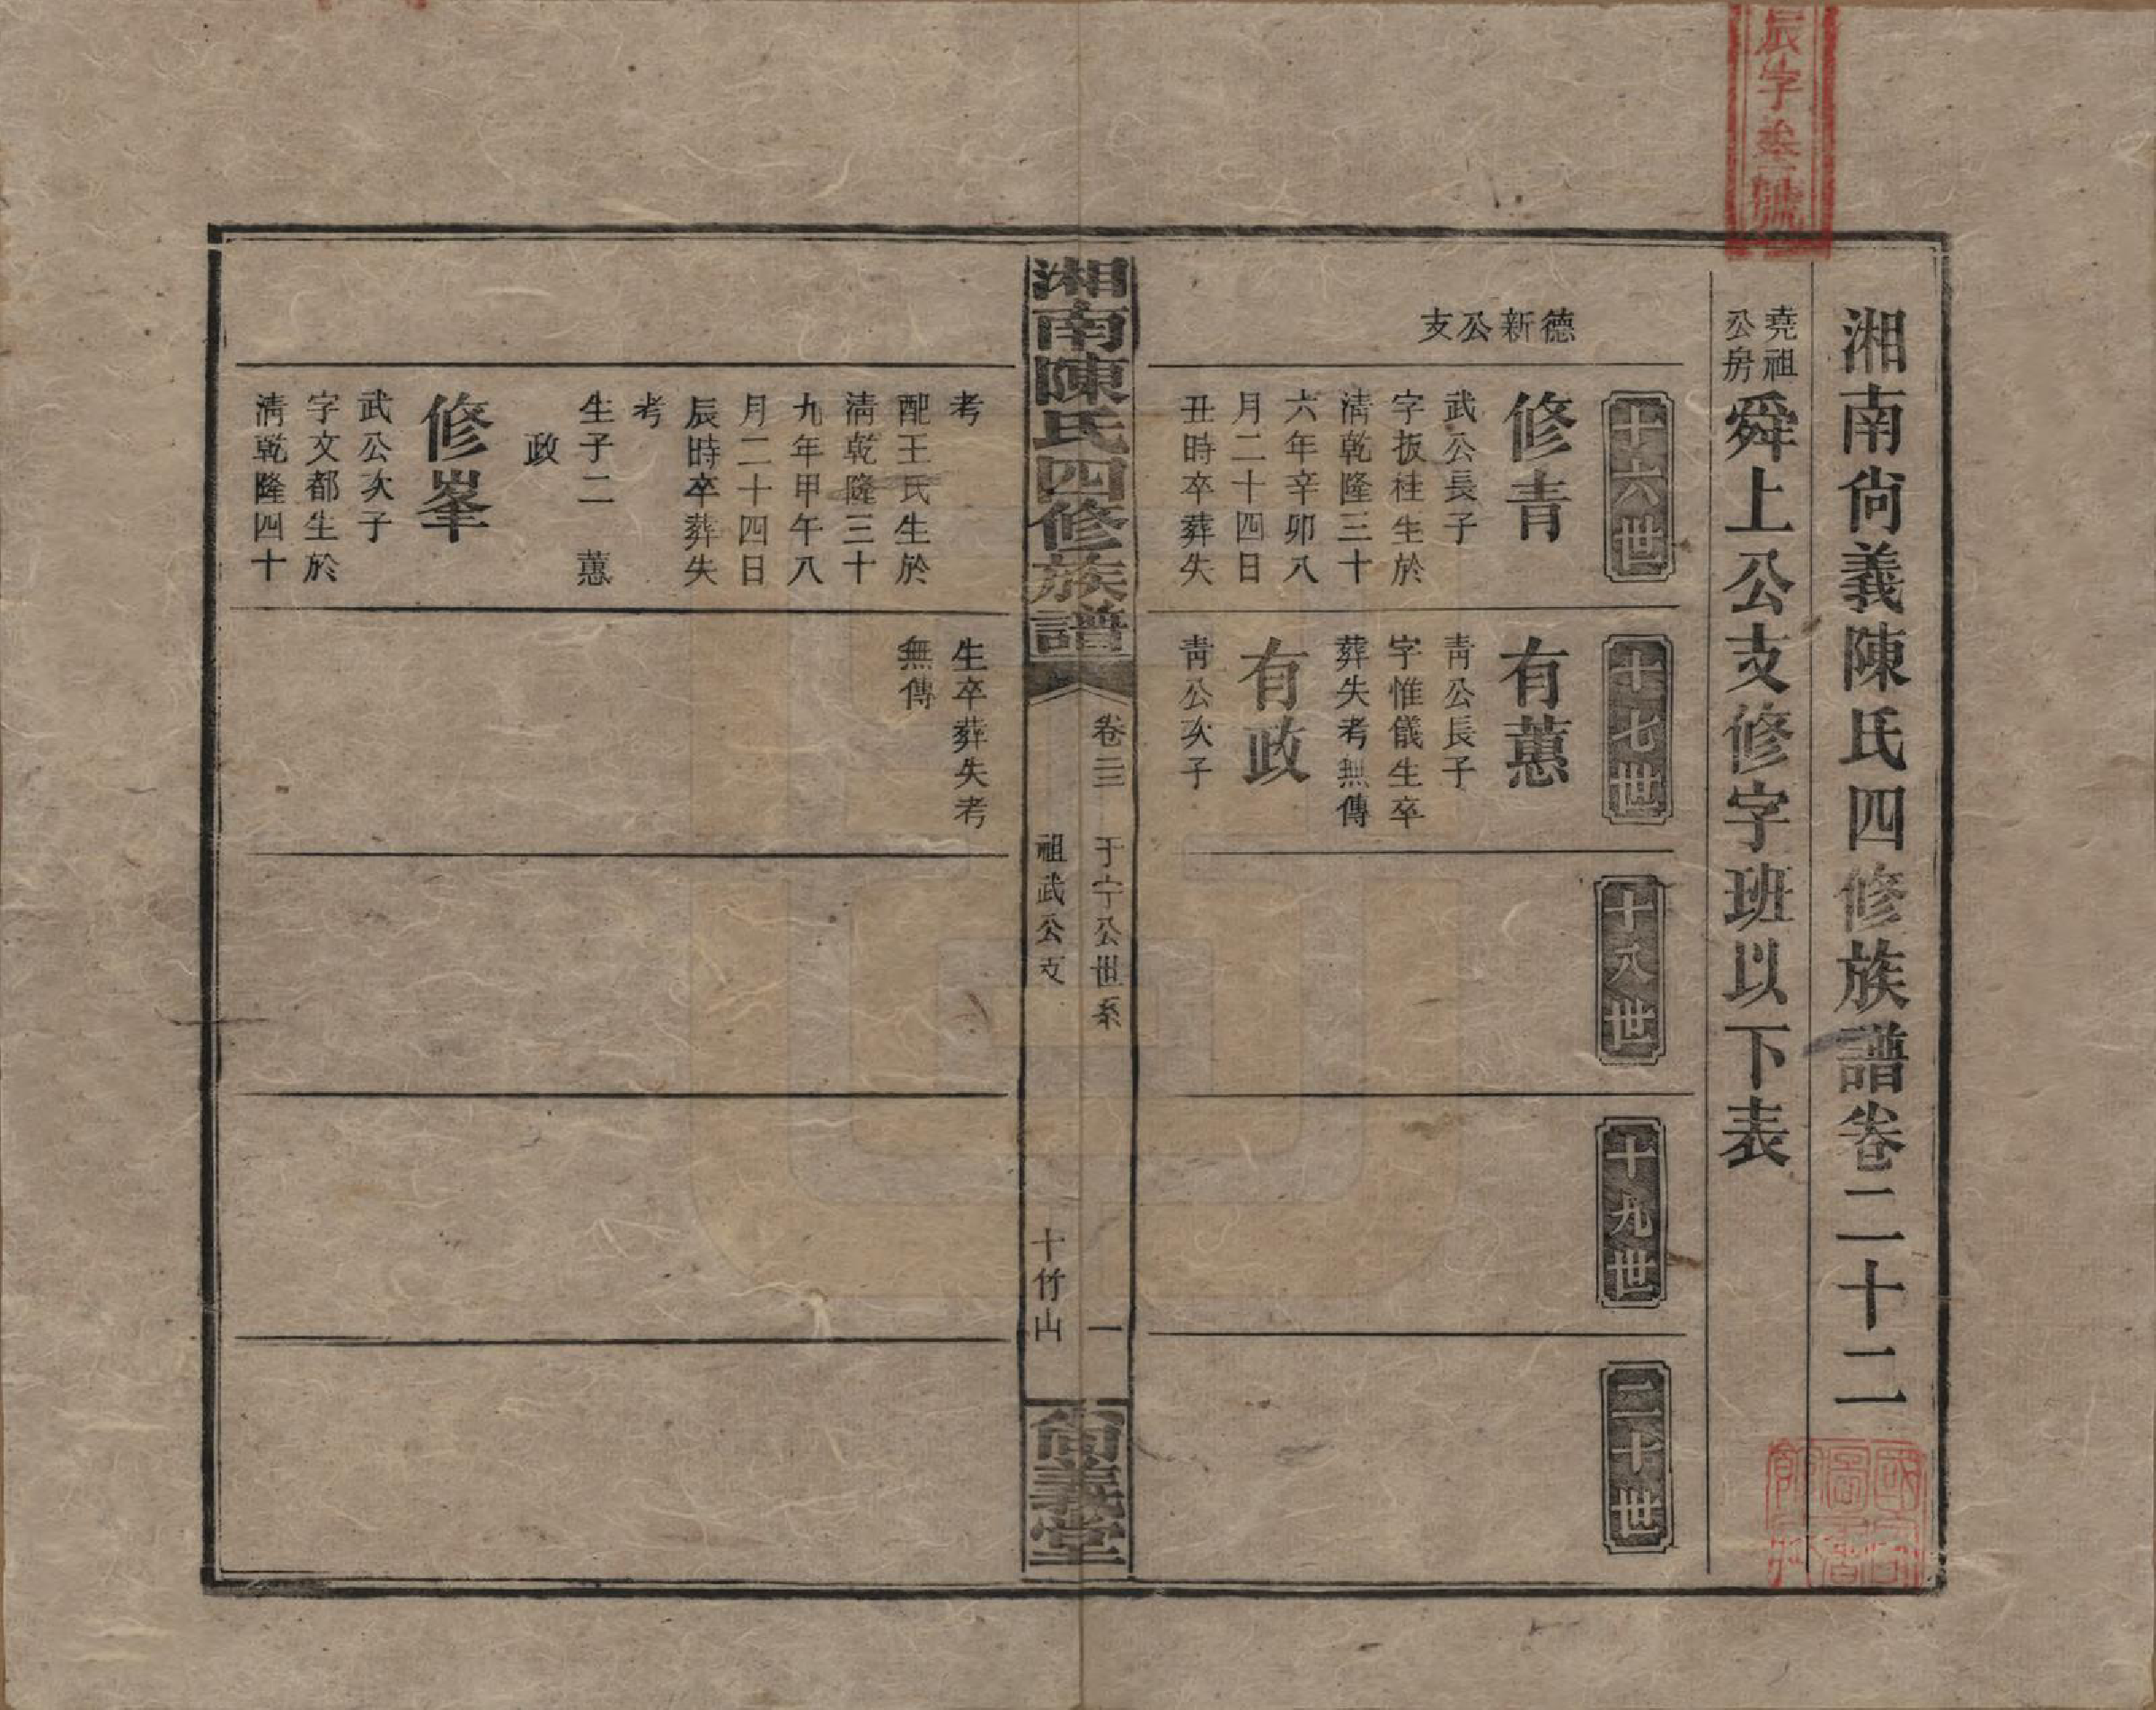 辰字卷號
湘南尙義陳氏四修族譜卷二十二
堯祖
公房
舜上公支修字班以下表
德新公支
十六世
修青
武公長子
字扳桂生於
淸乾隆三十
六年辛卯八
月二十四日
丑時卒葬失
十七世
有蕙
靑公長子
字惟儀生卒
葬失考無傳
有政
靑公次子
十八世
十九世
二十世
湘南陳氏四修族譜
卷二二
于宁公世系
一
祖武公支
十竹山
尙義堂
考
配王氏生於
淸乾隆三十
九年甲午八
月二十四日
辰時卒葬失
考
生子二 蕙
政
修峯
武公次子
字文都生於
淸乾隆四十
生卒葬失考
無傳